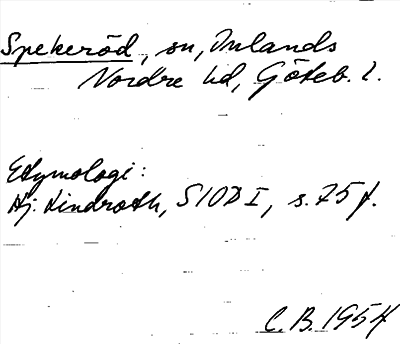 Spekeröd, sn, Inlands
Nordre hd, Göteb. l.
Etymologi:
Hj. Lindroth, SIOD I, s. 75 f.
C.B. 1954